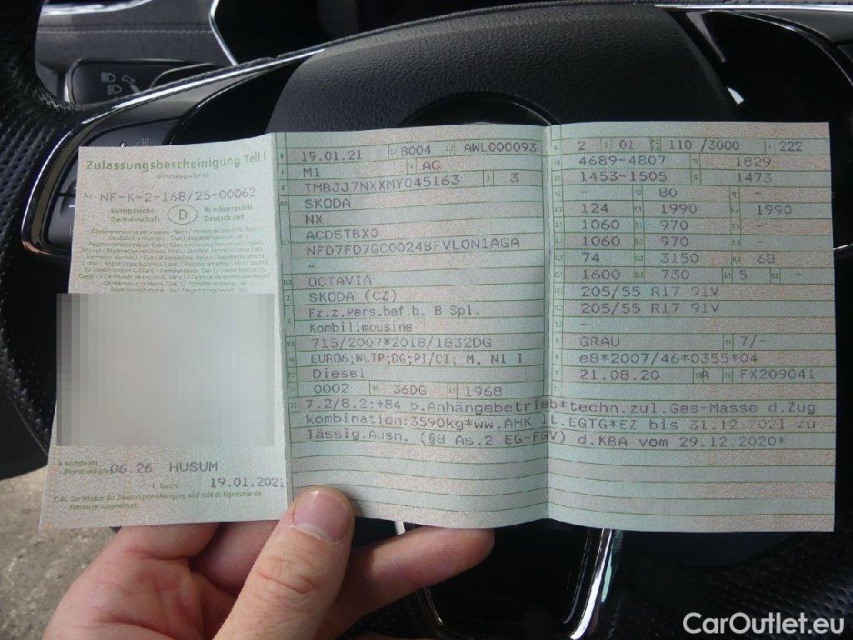 Zulassungsbescheinigung Teil I
NF-K-2-168/25-00062
Europäische Gemeinschaft D Bundesrepublik Deutschland
06.26 HUSUM
19.01.2021
19.01.21 8004 AWL000093
M1 AC
TMBJJ7NXXMY045163 3
SKODA
NX
ACDSTBX0
NFD7FD7GC00248FVLON1AGA
-
OCTAVIA
SKODA (CZ)
Fz.z.Pers.bef.b. 8 Spl.
Kombilimousine
715/2007*2018/1832DG
EURO6;WLTP;DG;PI/CI; M, N1 I
Diesel
0002 36DG 1968
7.2/8.2:+84 b.Anhängebetrieb*techn.zul.Ges-Masse d.Zug
kombination:3590kg*ww.AHK lt.EGTG*EZ bis 31.12.2021 zu
lässig.Ausn. (§8 As.2 EG-FGV) d.KBA vom 29.12.2020*
2 01 110 /3000 222
4689-4807 1829
1453-1505 1473
- 80 -
124 1990 1990
1060 970 -
1060 970 -
74 3150 68
1600 730 5 -
205/55 R17 91V
205/55 R17 91V
-
GRAU 7/-
e8*2007/46*0355*04
21.08.20 FX209041
CarOutlet.eu